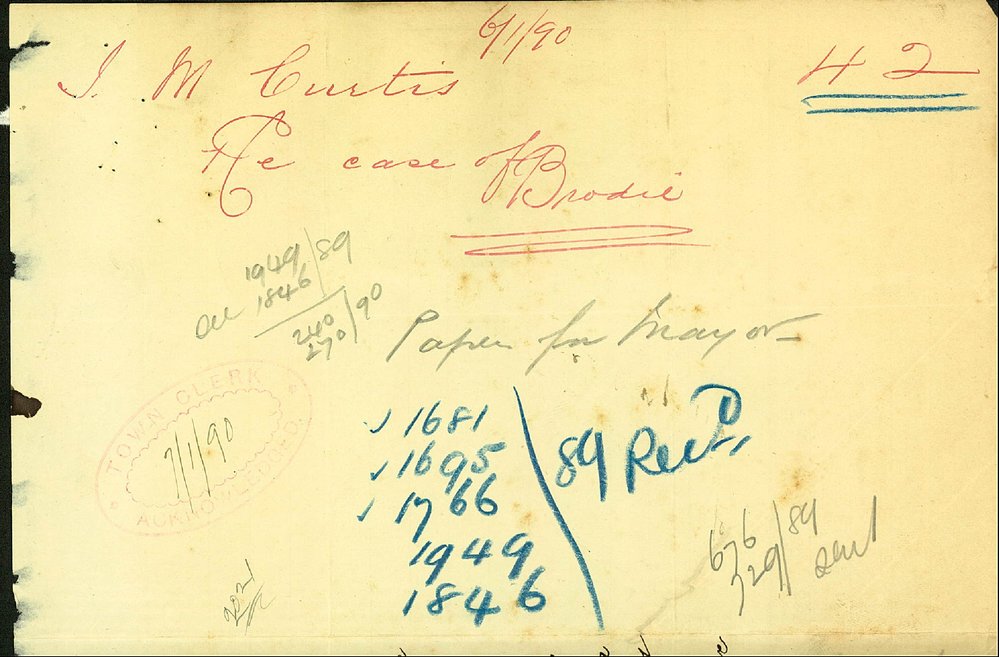 6/1/90
42
J. M Curtis
Re case of Brodie
1949/89
1846
240/90
270
Paper for Mayor
TOWN CLERK
7/1/90
ACKNOWLEDGED
✓ 1681
✓ 1695
✓ 1766
1949
1846
89 Recd
676/89
729 sent